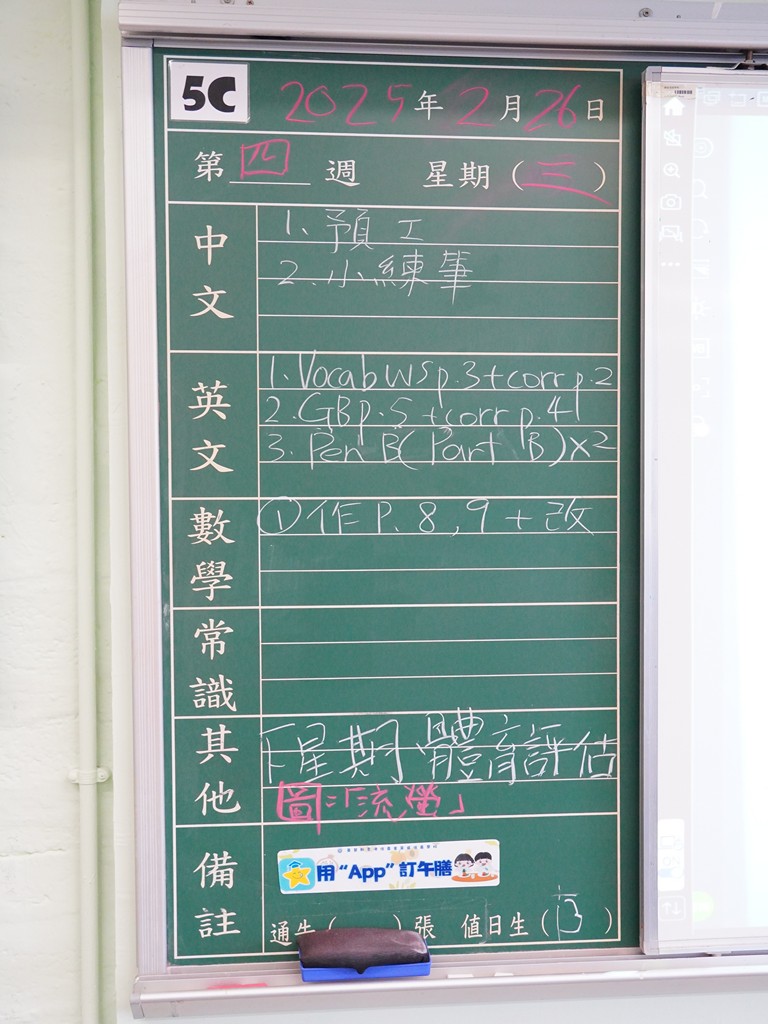 5C 2025年2月26日
第四週 星期(三)
中文
1. 預工
2. 小練筆
英文
1. Vocab WS p.3+corr p.2
2. GB p.5 +corr p.4
3. Pen B( Part B)x2
數學
① 作 P. 8,9 + 改
常識
其他
下星期體育評估
圖:「流螢」
備註
用“App”訂午膳
通告( )張 值日生(13)